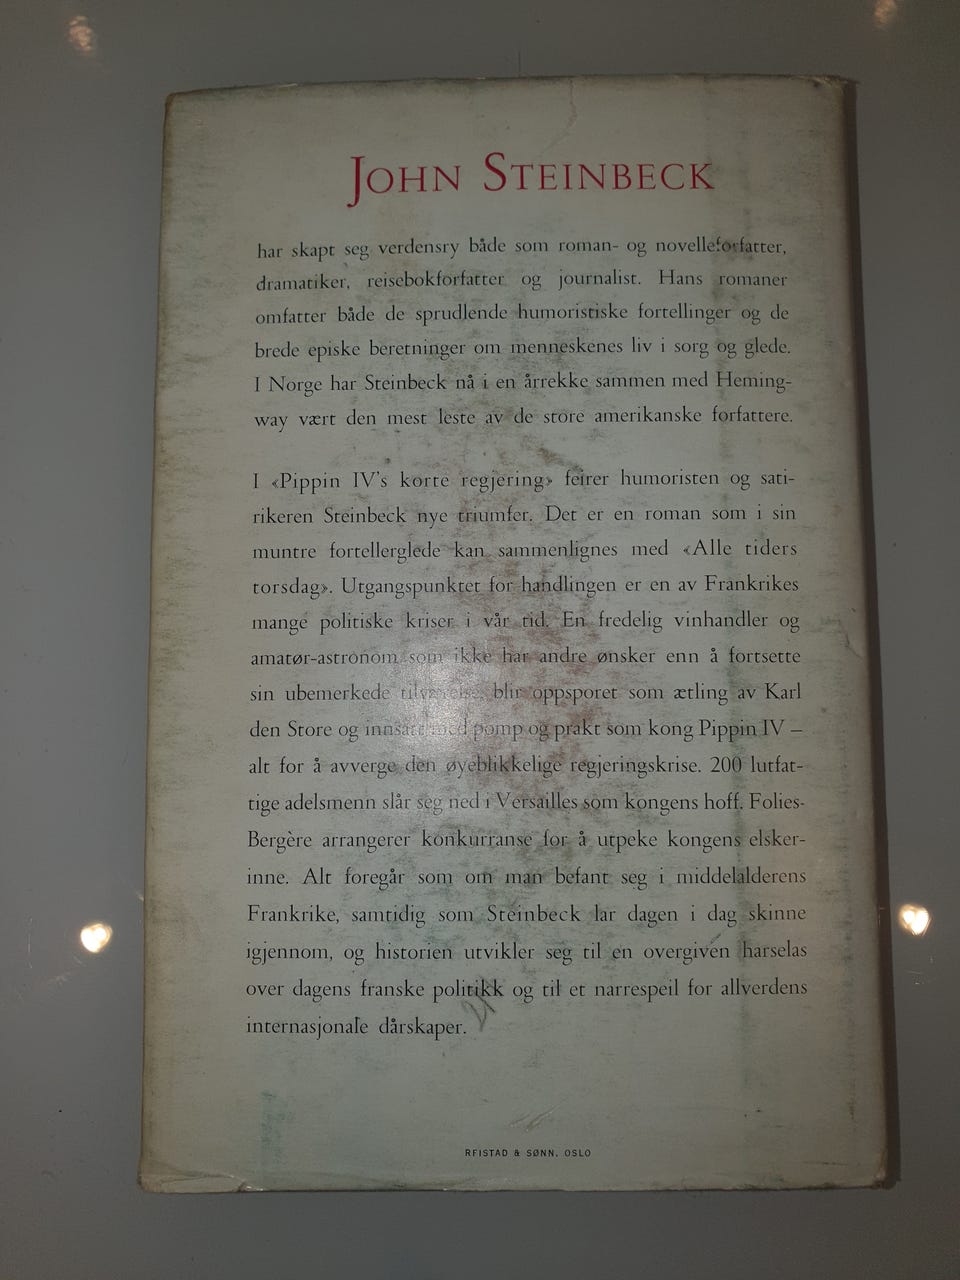 JOHN STEINBECK
har skapt seg verdensry både som roman- og novelleforfatter,
dramatiker, reisebokforfatter og journalist. Hans romaner
omfatter både de sprudlende humoristiske fortellinger og de
brede episke beretninger om menneskenes liv i sorg og glede.
I Norge har Steinbeck nå i en årrekke sammen med Heming-
way vært den mest leste av de store amerikanske forfattere.
I «Pippin IV's korte regjering» feirer humoristen og sati-
rikeren Steinbeck nye triumfer. Det er en roman som i sin
muntre fortellerglede kan sammenlignes med «Alle tiders
torsdag». Utgangspunktet for handlingen er en av Frankrikes
mange politiske kriser i vår tid. En fredelig vinhandler og
amatør-astronom som ikke har andre ønsker enn å fortsette
sin ubemerkede tilværelse, blir oppsporet som ætling av Karl
den Store og innsatt med pomp og prakt som kong Pippin IV –
alt for å avverge den øyeblikkelige regjeringskrise. 200 lutfat-
tige adelsmenn slår seg ned i Versailles som kongens hoff. Folies-
Bergère arrangerer konkurranse for å utpeke kongens elsker-
inne. Alt foregår som om man befant seg i middelalderens
Frankrike, samtidig som Steinbeck lar dagen i dag skinne
igjennom, og historien utvikler seg til en overgiven harselas
over dagens franske politikk og til et narrespeil for allverdens
internasjonale dårskaper.
RFISTAD & SØNN, OSLO